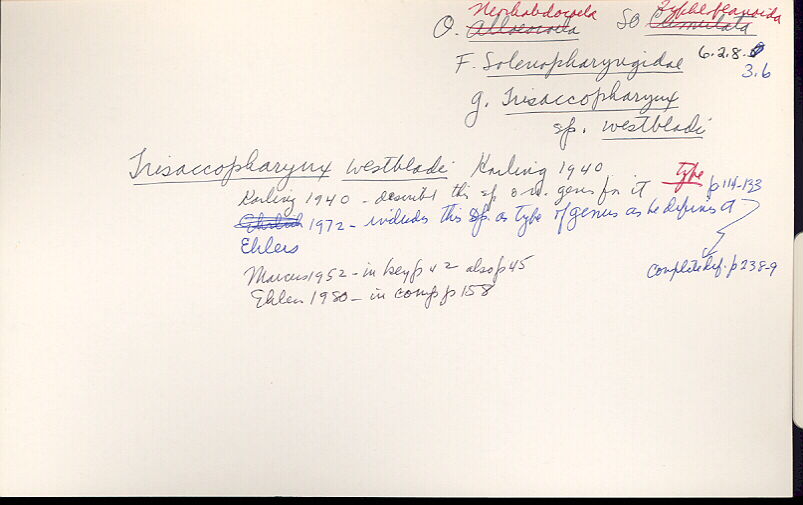 Neorhabdocoela Typhloplanoida
O. Alloeocoela SO Cumulata
F. Solenopharyngidae 6.2.8.
3.6
g. Trisaccopharynx
sp. westbladi
Trisaccopharynx westbladi Karling 1940 type
Karling 1940 - describes this sp & n. genus for it p 114-133
Ehrlich 1972 - includes this sp. as type of genus as he defines it
Ehlers
Complete def. p 238-9
Marcus 1952 - in key p 42 also p 45
Ehlers 1980 - in comp p 158